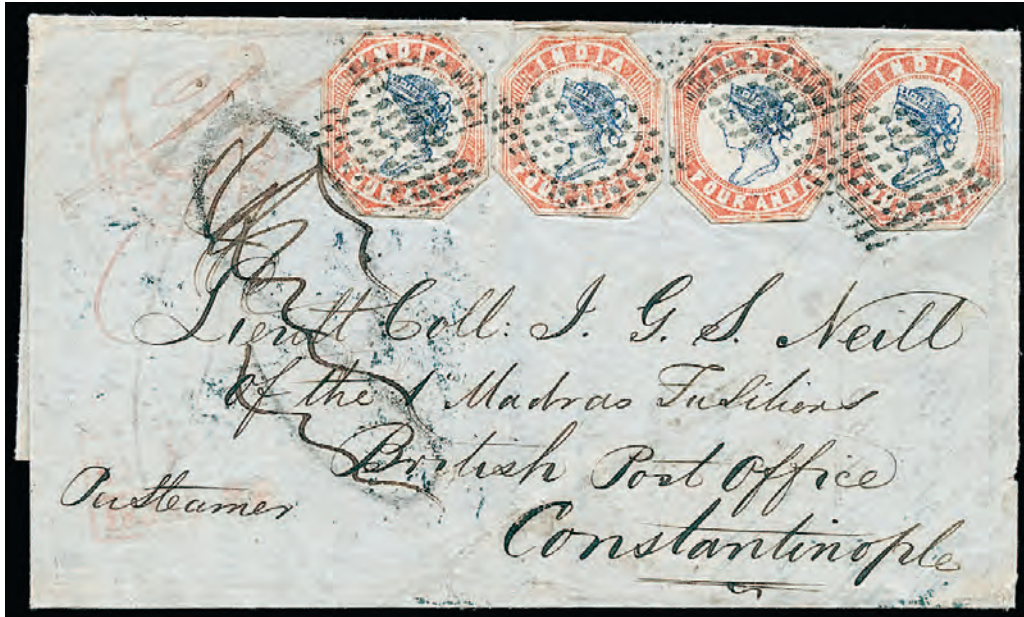 INDIA INDIA INDIA INDIA
FOUR ANNAS FOUR ANNAS FOUR ANNAS
Lieutt Coll: J. G. S. Neill
of the 1 Madras Fusiliers
British Post Office
Per Steamer
Constantinople